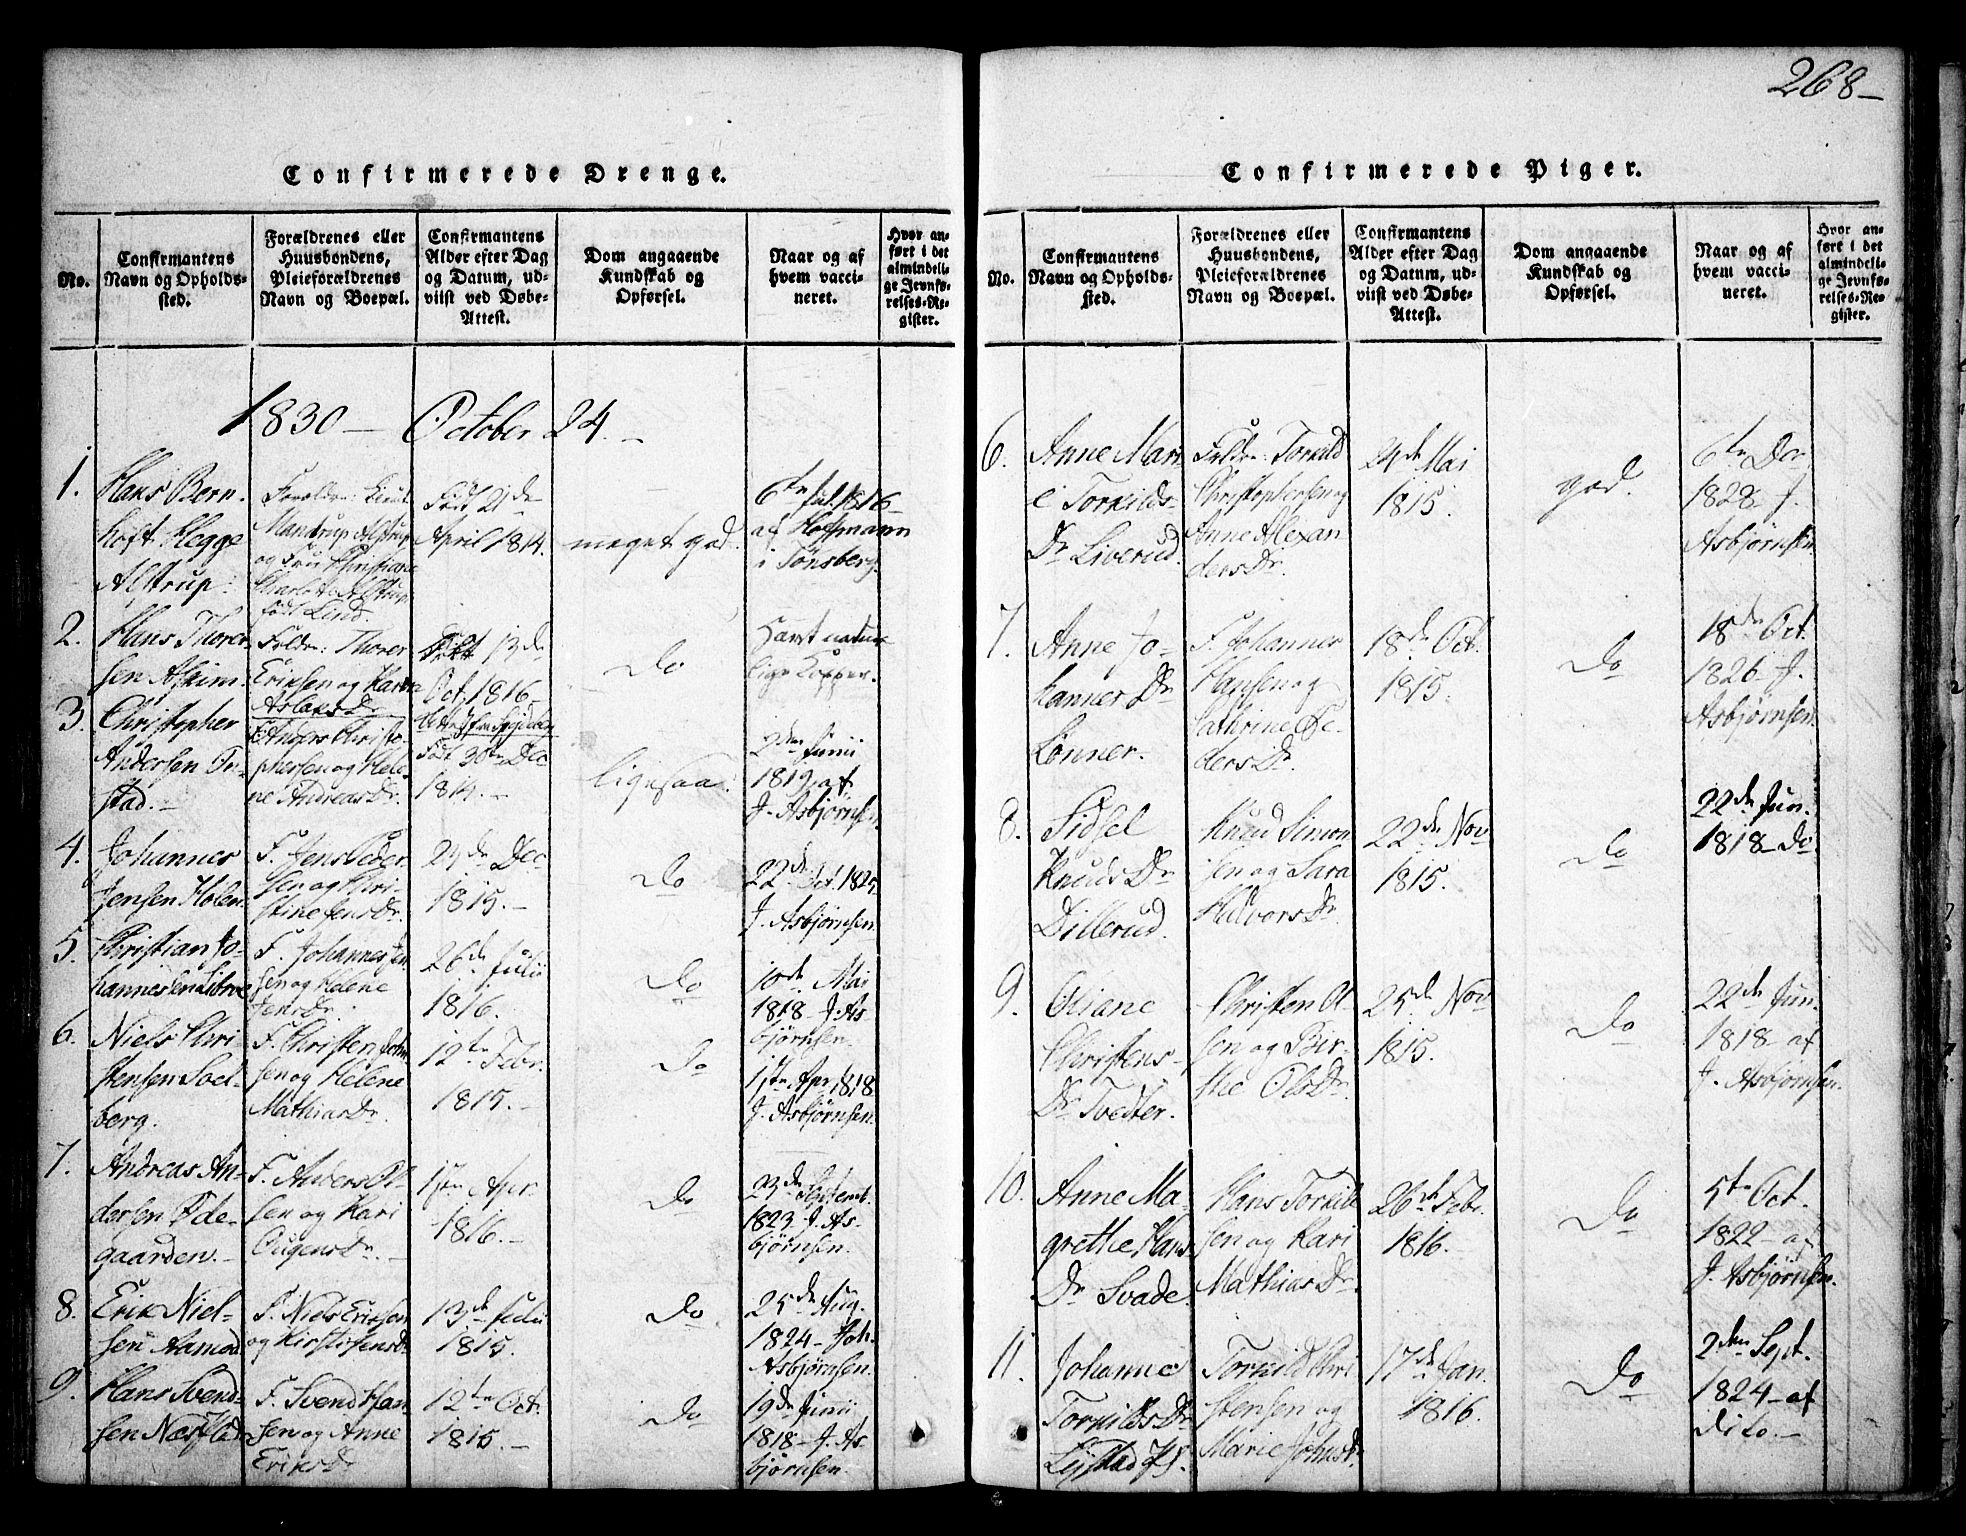 268-
Confirmerede Drenge.
No.
Confirmantens
Navn og Opholds-
sted.
Forældrenes eller
Huusbondens,
Pleieforældrenes
Navn og Boepæl.
Confirmantens
Alder efter Dag
og Datum, ud-
viist ved Døbe-
Attest.
Dom angaaende
Kundskab og
Opførsel.
Naar og af
hvem vacci-
neret.
Hvor an-
ført i det
almindeli-
ge Jevnfø-
relses-Re-
gister.
1830 — October 24. -
1.
Hans Bern-
hoft Hegge
Alstrup.
Foreldre:
Mandrup Alstrup
og Fru Christiane
Charlotte Alstrup
født Lind.
Født 21de
April 1814.
meget god.
6te Jul. 1816
af Hoffmann
i Tønsberg.
2.
Hans Thorer-
sen Askim.
Foldre: Thorer
Eriksen og Karen
Aslaks Dr
13de
Oct. 1816
Do
Havt natur-
lige Kopper.
3.
Christopher
Andersen
stad. -
Anders Christo-
phersen og Hele-
ne Andreas Dr.
Født 30te Dec
1814. -
ligesaa.
2den Junii
1819 af
J. Asbjørnsen.
4.
Johannes
Jensen Holen.
F. Jens Peder-
sen og Chri-
stine Jens Dr.
29de Dec
1815. -
Do
22de Oct. 1825
J. Asbjørnsen.
5.
Christian Jo-
hannesen
F. Johannes Jen-
sen og Helene
Jens Dr.
26de Julii
1816.
Do
10de Mai
1818 - J. As-
bjørnsen.
6.
Niels Chri-
stensen Soel-
berg.
F. Christen John-
sen og Helene
Mathias Dr.
12te Febr.
1815. -
Do
Apr. 1818
J. Asbjørnsen.
7.
Andreas An-
dersen Øde-
gaarden. -
F. Anders Ol-
sen og Kari
Eugens Dr. -
Apr.
1816. -
Do
23de Septemb.
1823 - J. As-
bjørnsen.
8.
Erik Niel-
sen Aamod
F. Niels Eriksen
og Kirsti Jens Dr
13de Julii
1815.
Do
25de Aug.
1824 - Joh.
Asbjørnsen.
9.
Hans Svend-
sen Næsstad
F. Svend Han-
sen og Anne
Eriks Dr
12te Oct.
1815. -
Do
19de Junii
1818 - J. As-
bjørnsen.
Confirmerede Piger.
No.
Confirmantens
Navn og Opholds-
sted.
Forældrenes eller
Huusbondens,
Pleieforældrenes
Navn og Boepæl.
Confirmantens
Alder efter Dag
og Datum, ud-
viist ved Døbe-
Attest.
Dom angaaende
Kundskab og
Opførsel.
Naar og af
hvem vacci-
neret.
Hvor an-
ført i det
almindeli-
ge Jevnfø-
relses-Re-
gister.
6.
Anne Mari-
e Torkilds-
Dr Liverud.
Foldre: Torkild
Christophersen og
Anne Alexan
ders Dr.
24de Mai
1815.
god.
6te Dec
1828 - J.
Asbjørnsen
7.
Anne Jo-
hannes Dr
Lønner.
F. Johannes
Hansen og
Cathrine Pe-
ders Dr.
18de Oct.
1815.
Do
18de Oct.
1826 - J.
Asbjørnsen.
8.
Sidsel
Knuds Dr
Dillerud.
Knud Simon
sen og Sara
Halvors Dr
22de Nov
1815.
Do
22de Jun.
1818 - Do
9.
Oliane
Christens-
Dr Tvedter.
Christen Ol-
sen og Bir-
the Ols Dr.
25de Nov
1815.
Do
22de Jun.
1818 - af
J. Asbjørnsen.
10.
Anne Ma-
grethe Hans
Dr Svade.
Hans Torkild-
sen og Kari
Mathias Dr.
26de Febr.
1816.
Do
5te Oct.
1822 - af
J. Asbjørnsen.
11.
Johanne
Torkilds Dr
Torkild Chri
stensen og
Marie Johns Dr.
17de Jan.
1816.
Do
2den Sept.
1824 - af
dito. -